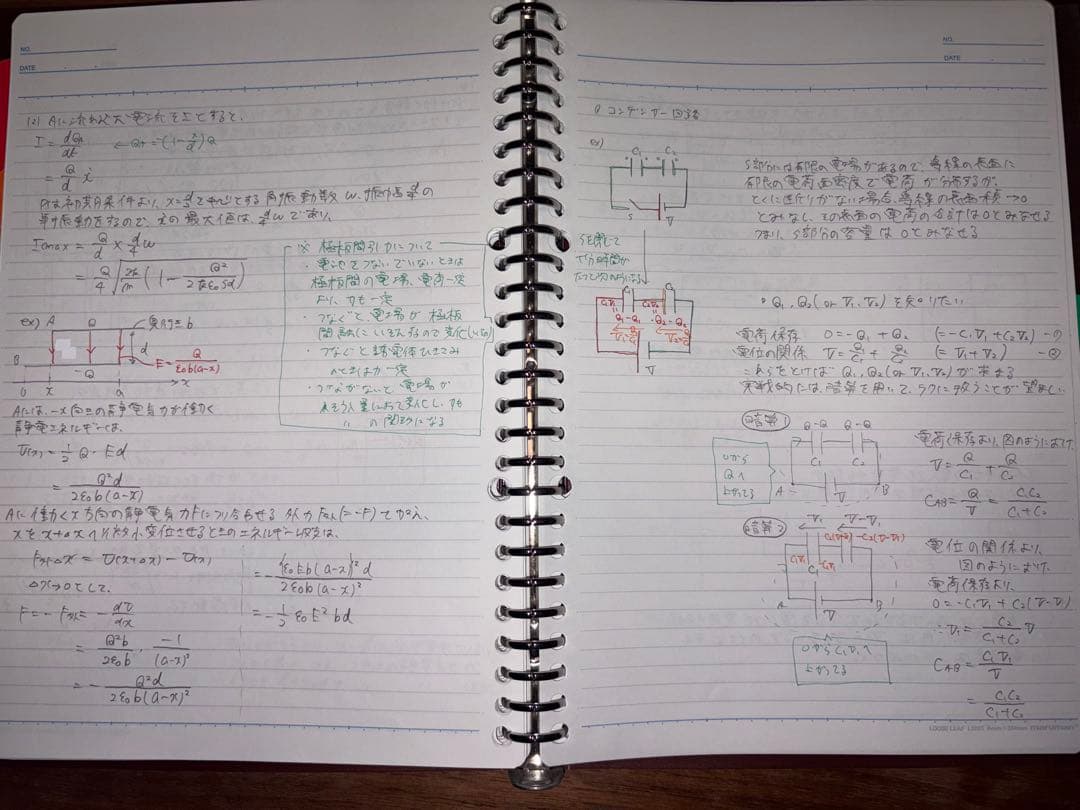 NO.
DATE
(2) Aに流れ込む電流をIとすると、
I = dQA/dt ← QA = (1 - x/d)Q
= Q/d ẋ
単振動をするので、ẋの最大値は、d/4 ωであり、
Imax = Q/d × d/4 ω
= Q/4 √(2k/m (1 - Q²/2kε0Sd))
※ 極板間引力について
・電池をつないでいないときは
極板間の電場、電荷一定
より、力も一定
・つなぐと電場が極板
・つなぐと誘電体ひきこみ
力は一定
・つながないと、電場が
〃 の関数になる
ex)
A
Q
奥行き b
d
B
-Q
E = Q/ε0b(a-x)
0 x a x
Aには、-x向きの静電気力が働く
静電エネルギーは、
U(x) = 1/2 Q・Ed
= Q²d/2ε0b(a-x)
Aに働くx方向の静電気力Fにつり合わせる外力F外(=-F)で
xをx+Δxへ微小変位させるときのエネルギー収支は、
F外Δx = U(x+Δx) - U(x)
Δx→0として、
F = -F外 = -dU/dx
= Q²b/2ε0b ・ -1/(a-x)²
= - Q²d/2ε0b(a-x)²
= - {ε0Eb(a-x)}²d/2ε0b(a-x)²
= - 1/2 ε0E²bd
NO.
DATE
コンデンサー回路
ex)
C1 C2
S V
S部分には有限の電場があるので、導線の表面に
有限の電荷面密度で電荷が分布するが、
とくに断りがない場合、導線の表面積→0
とみなし、その表面の電荷の合計は0とみなせる
つまり、S部分の容量は0とみなせる
Sを閉じて
十分時間が
たつと次のようになる
C1 C2
Q1 -Q1 Q2 -Q2
V
・Q1, Q2 (or V1, V2) を知りたい
電荷保存 0 = -Q1 + Q2 (= -C1V1 + C2V2) -①
電位の関係 V = Q1/C1 + Q2/C2 (= V1 + V2) -②
これらをとけば、Q1, Q2 (or V1, V2) が求まる
実戦的には、暗算を用いて、ラクに扱うことが望ましい
暗算1
0から
Qへ
Q -Q Q -Q
C1 C2
A V B
電荷保存より、図のようにおけて
V = Q/C1 + Q/C2
CAB = Q/V = C1C2/C1+C2
暗算2
V1 V-V1
C1V1 -C1V1 C2(V-V1) -C2(V-V1)
C1
A V B
0からC1V1へ
電位の関係より、
図のようにおけて
電荷保存より、
0 = -C1V1 + C2(V-V1)
∴ V1 = C2/C1+C2 V
CAB = C1V1/V
= C1C2/C1+C2